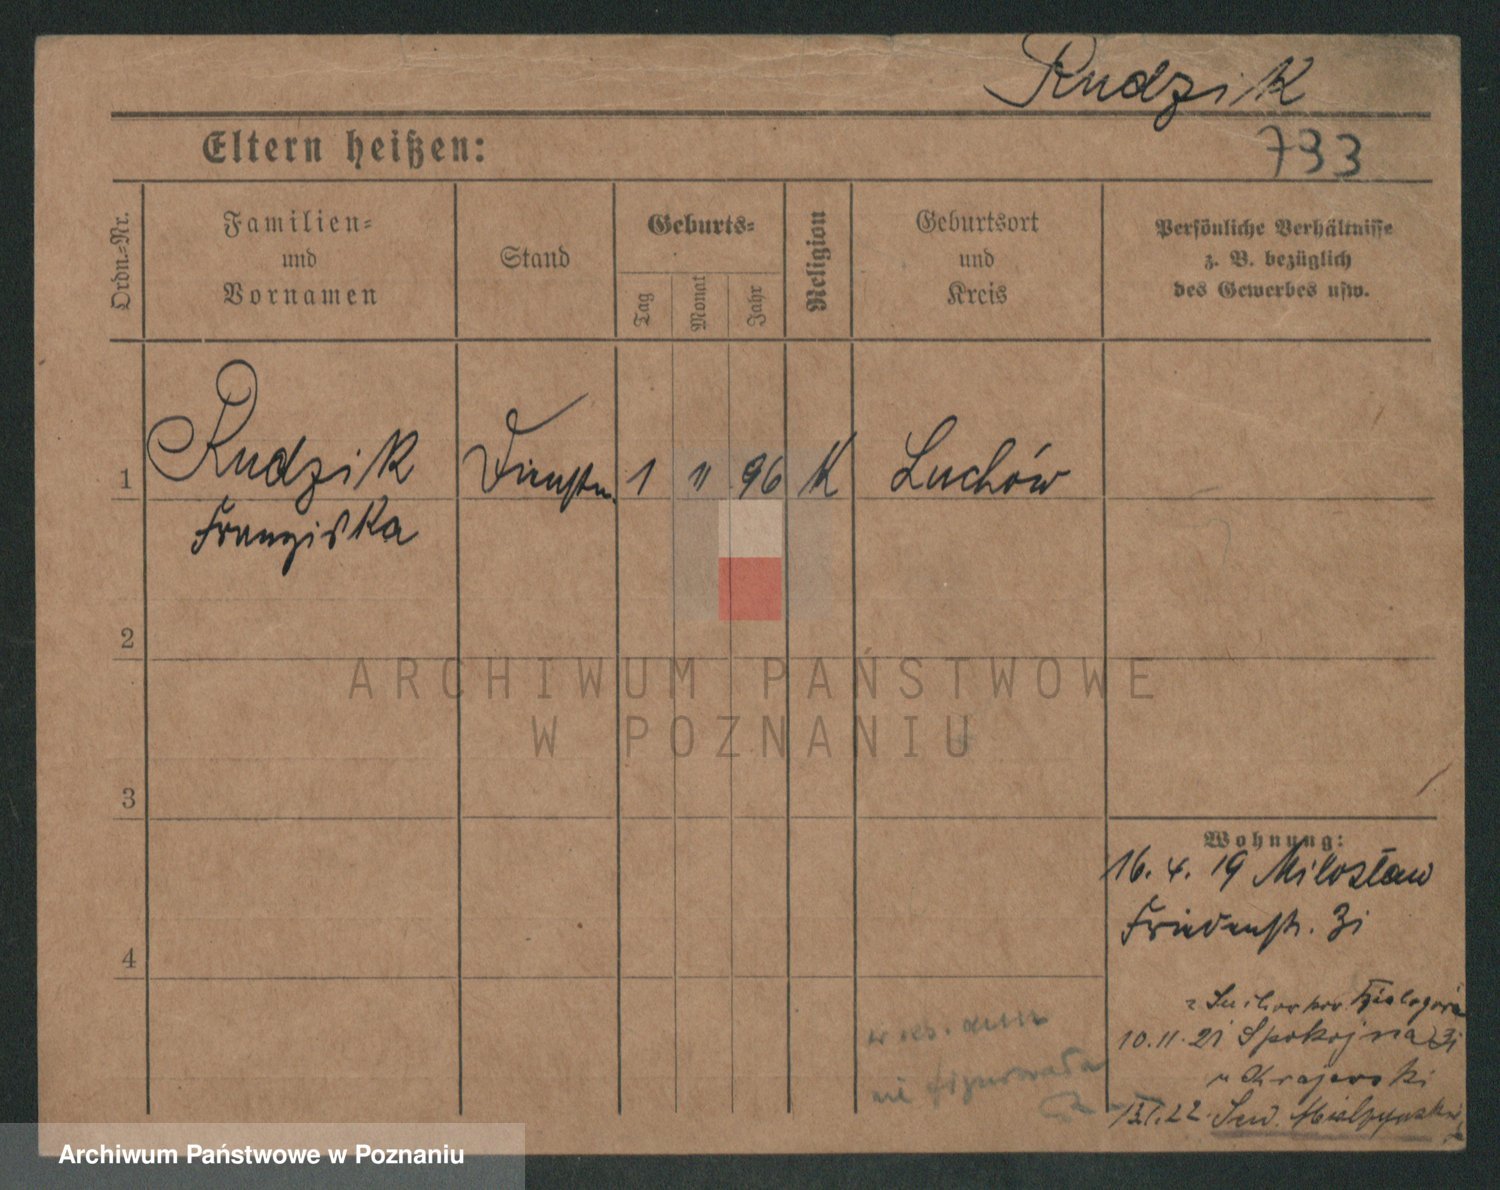 Rudzik
733
Eltern heißen:
Ordn.-Nr.
Familien-
und
Vornamen
Stand
Geburts-
Tag
Monat
Jahr
Religion
Geburtsort
und
Kreis
Persönliche Verhältnisse
z. B. bezüglich
des Gewerbes usw.
1
Rudzik
Franziska
Dienstm.
1 11 96 K Luchów
2
ARCHIWUM PAŃSTWOWE
W POZNANIU
3
Wohnung:
16. 4. 19 Miłosław
Friedenstr. 31
4
10.11.21 Spokojna 31
u Krajewski
22. Sew. Mielżyńskiego
nie figurowała
Archiwum Państwowe w Poznaniu